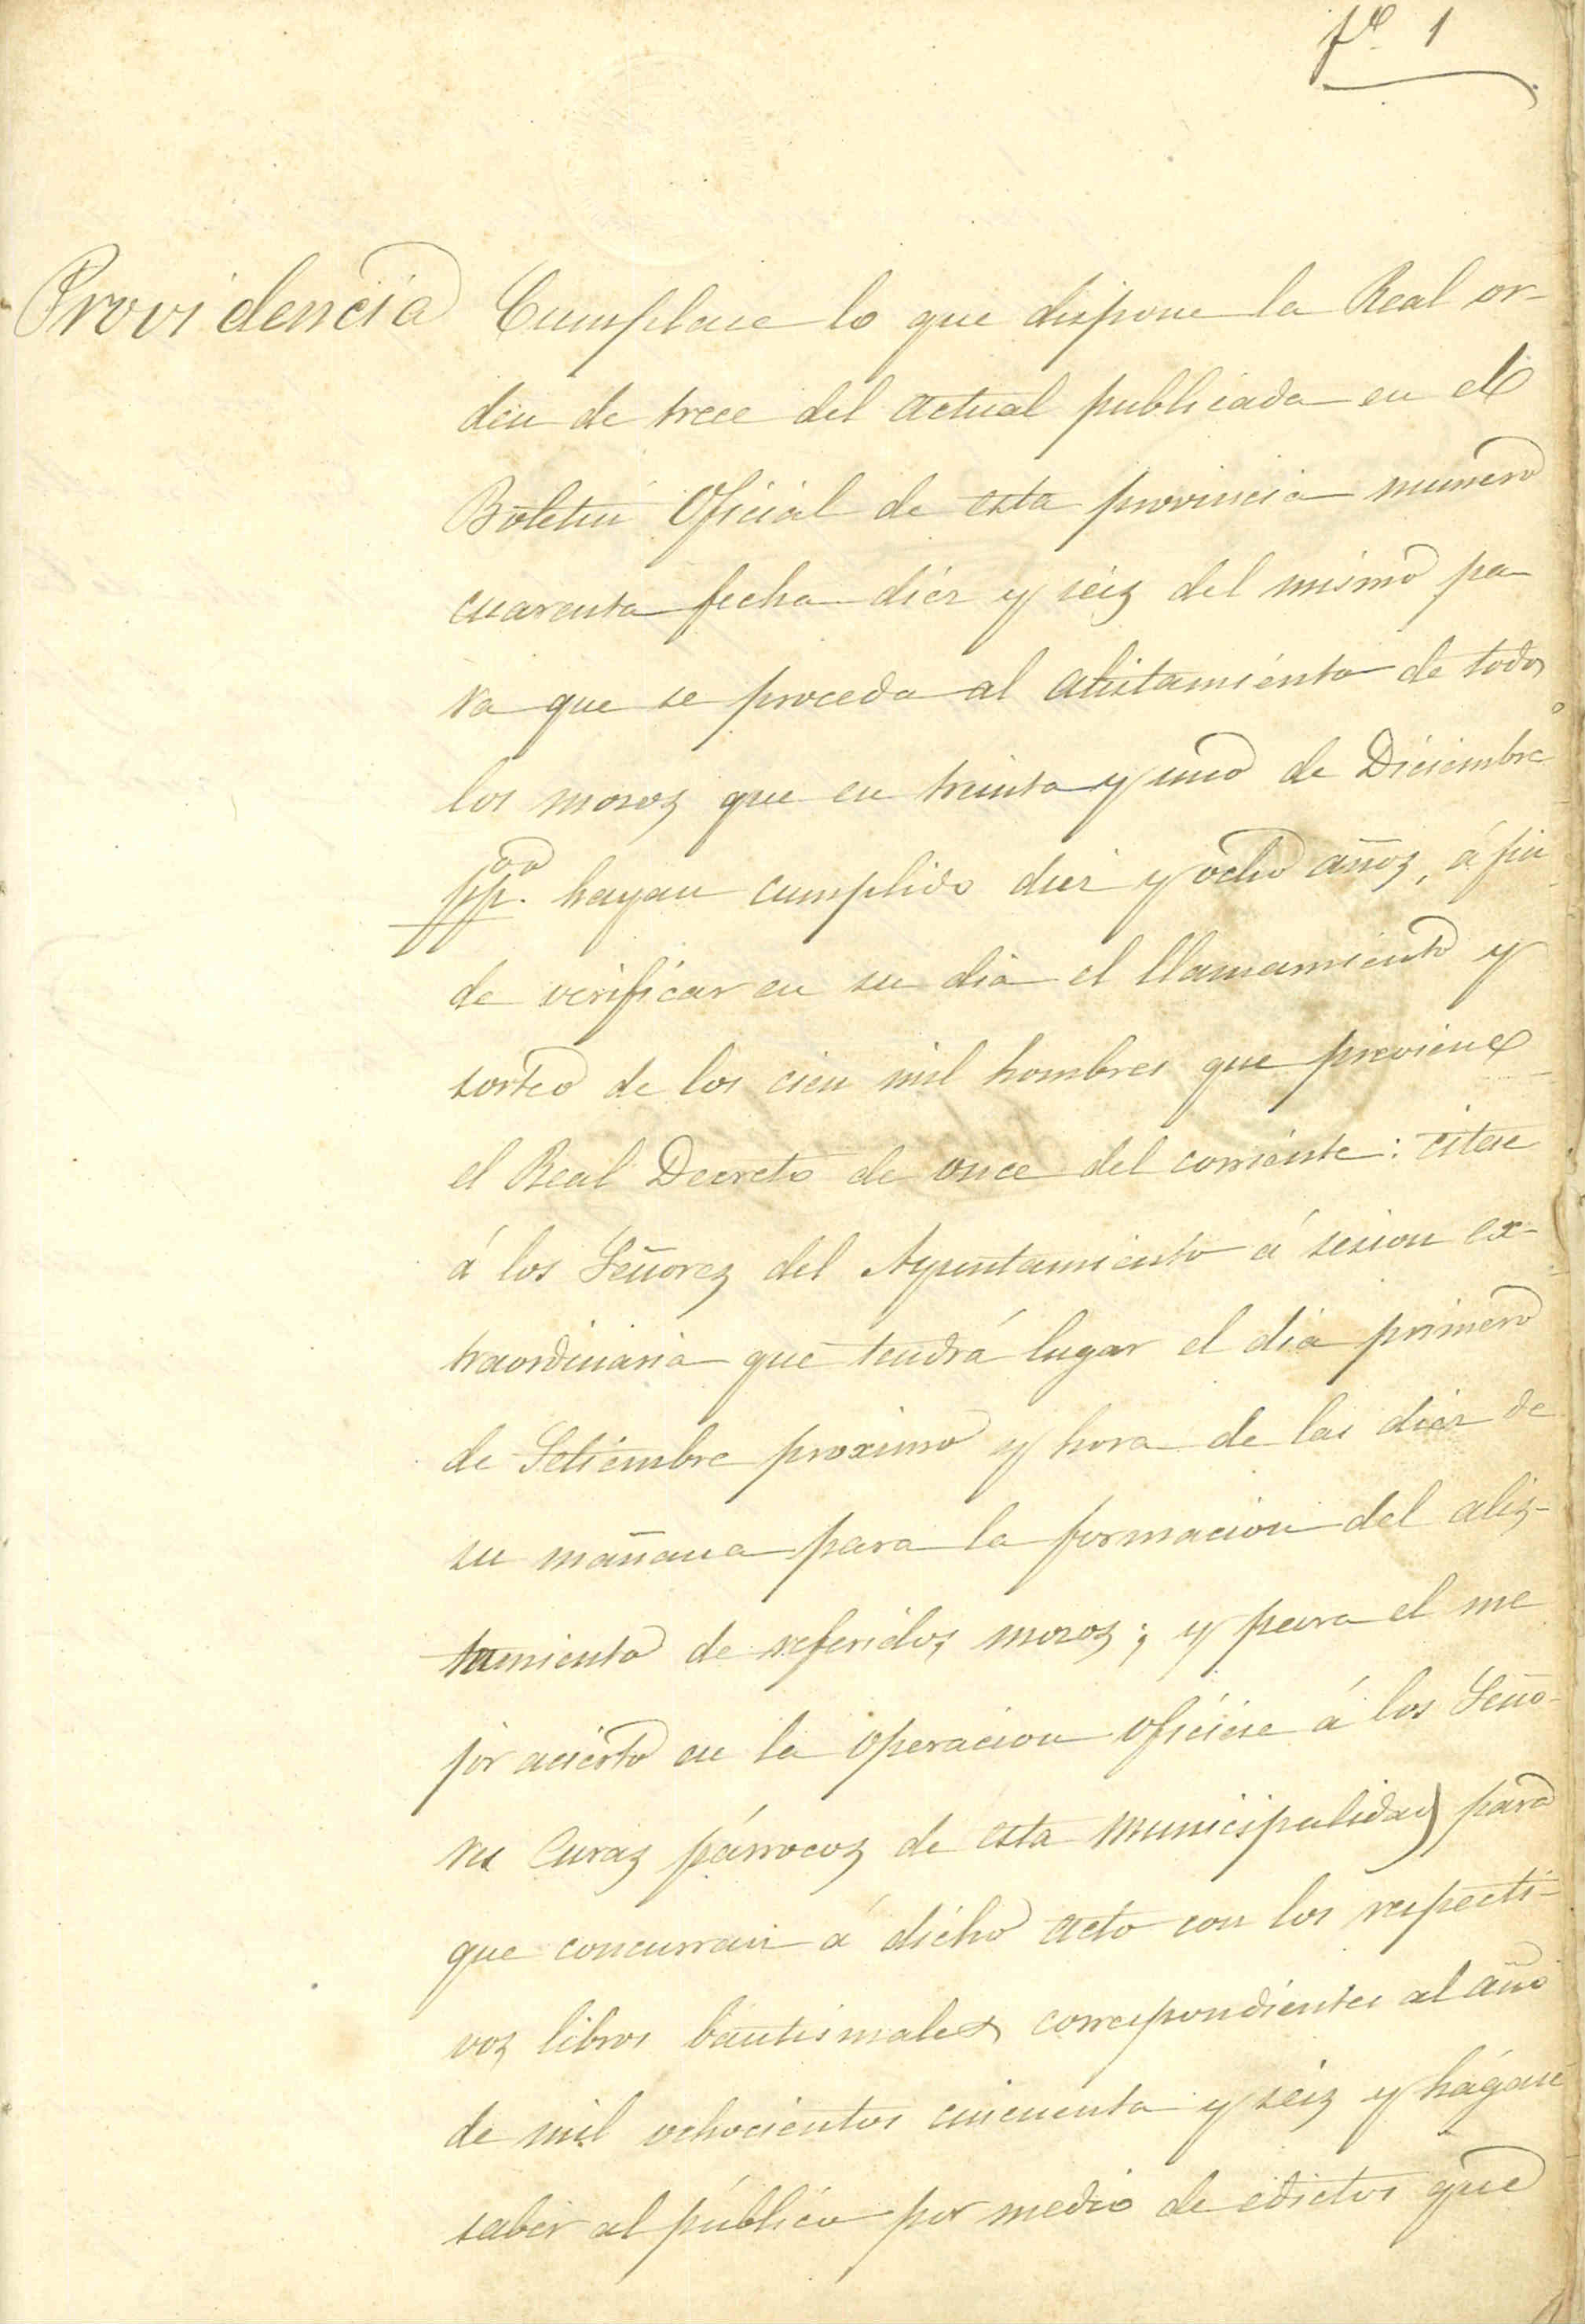 fº 1
Providencia Cumplase lo que dispone la Real or-
den de trece del actual publicada en el
Boletin Oficial de esta provincia numero
cuarenta fecha diez y seiz del mismo pa-
ra que se proceda al alistamiento de todos
los mozoz que en treinta y uno de Diciembre
ppº hayan cumplido diez y ocho añoz, á fin
de verificar en su dia el llamamiento y
sorteo de los cien mil hombres que previene
el Real Decreto de once del corriente: citese
á los Señorez del Ayuntamiento á sesion ex-
traordinaria que tendrá lugar el dia primero
de Setiembre proximo y hora de las diez de
su mañana para la formacion del aliz-
tamiento de referidos mozoz; y para el me
jor acierto en la operacion oficiese á los Seño-
res Curaz párrocoz de esta Municipalidad para
que concurran á dicho acto con los respecti-
voz libros bautismales correspondientes al año
de mil ochocientos cincuenta y seiz y hágase
saber al público por medio de edictos que